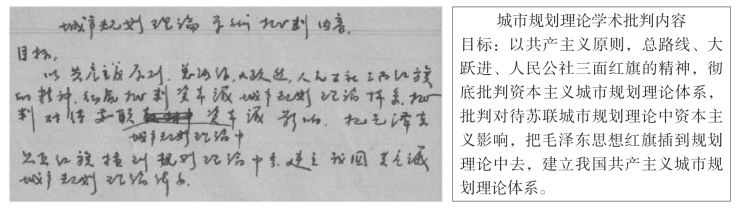 城市规划理论学术批判内容.
目标.
以共产主义原则,总路线,大跃进,人民公社三面红旗
的精神,彻底批判资本主义城市规划理论体系,批
判对待苏联资本主义影响,把毛泽东
城市规划理论中
思想红旗插到规划理论中去,建立我国共产主义
城市规划理论体系.
城市规划理论学术批判内容
目标：以共产主义原则，总路线、大
跃进、人民公社三面红旗的精神，彻
底批判资本主义城市规划理论体系，
批判对待苏联城市规划理论中资本主
义影响，把毛泽东思想红旗插到规划
理论中去，建立我国共产主义城市规
划理论体系。